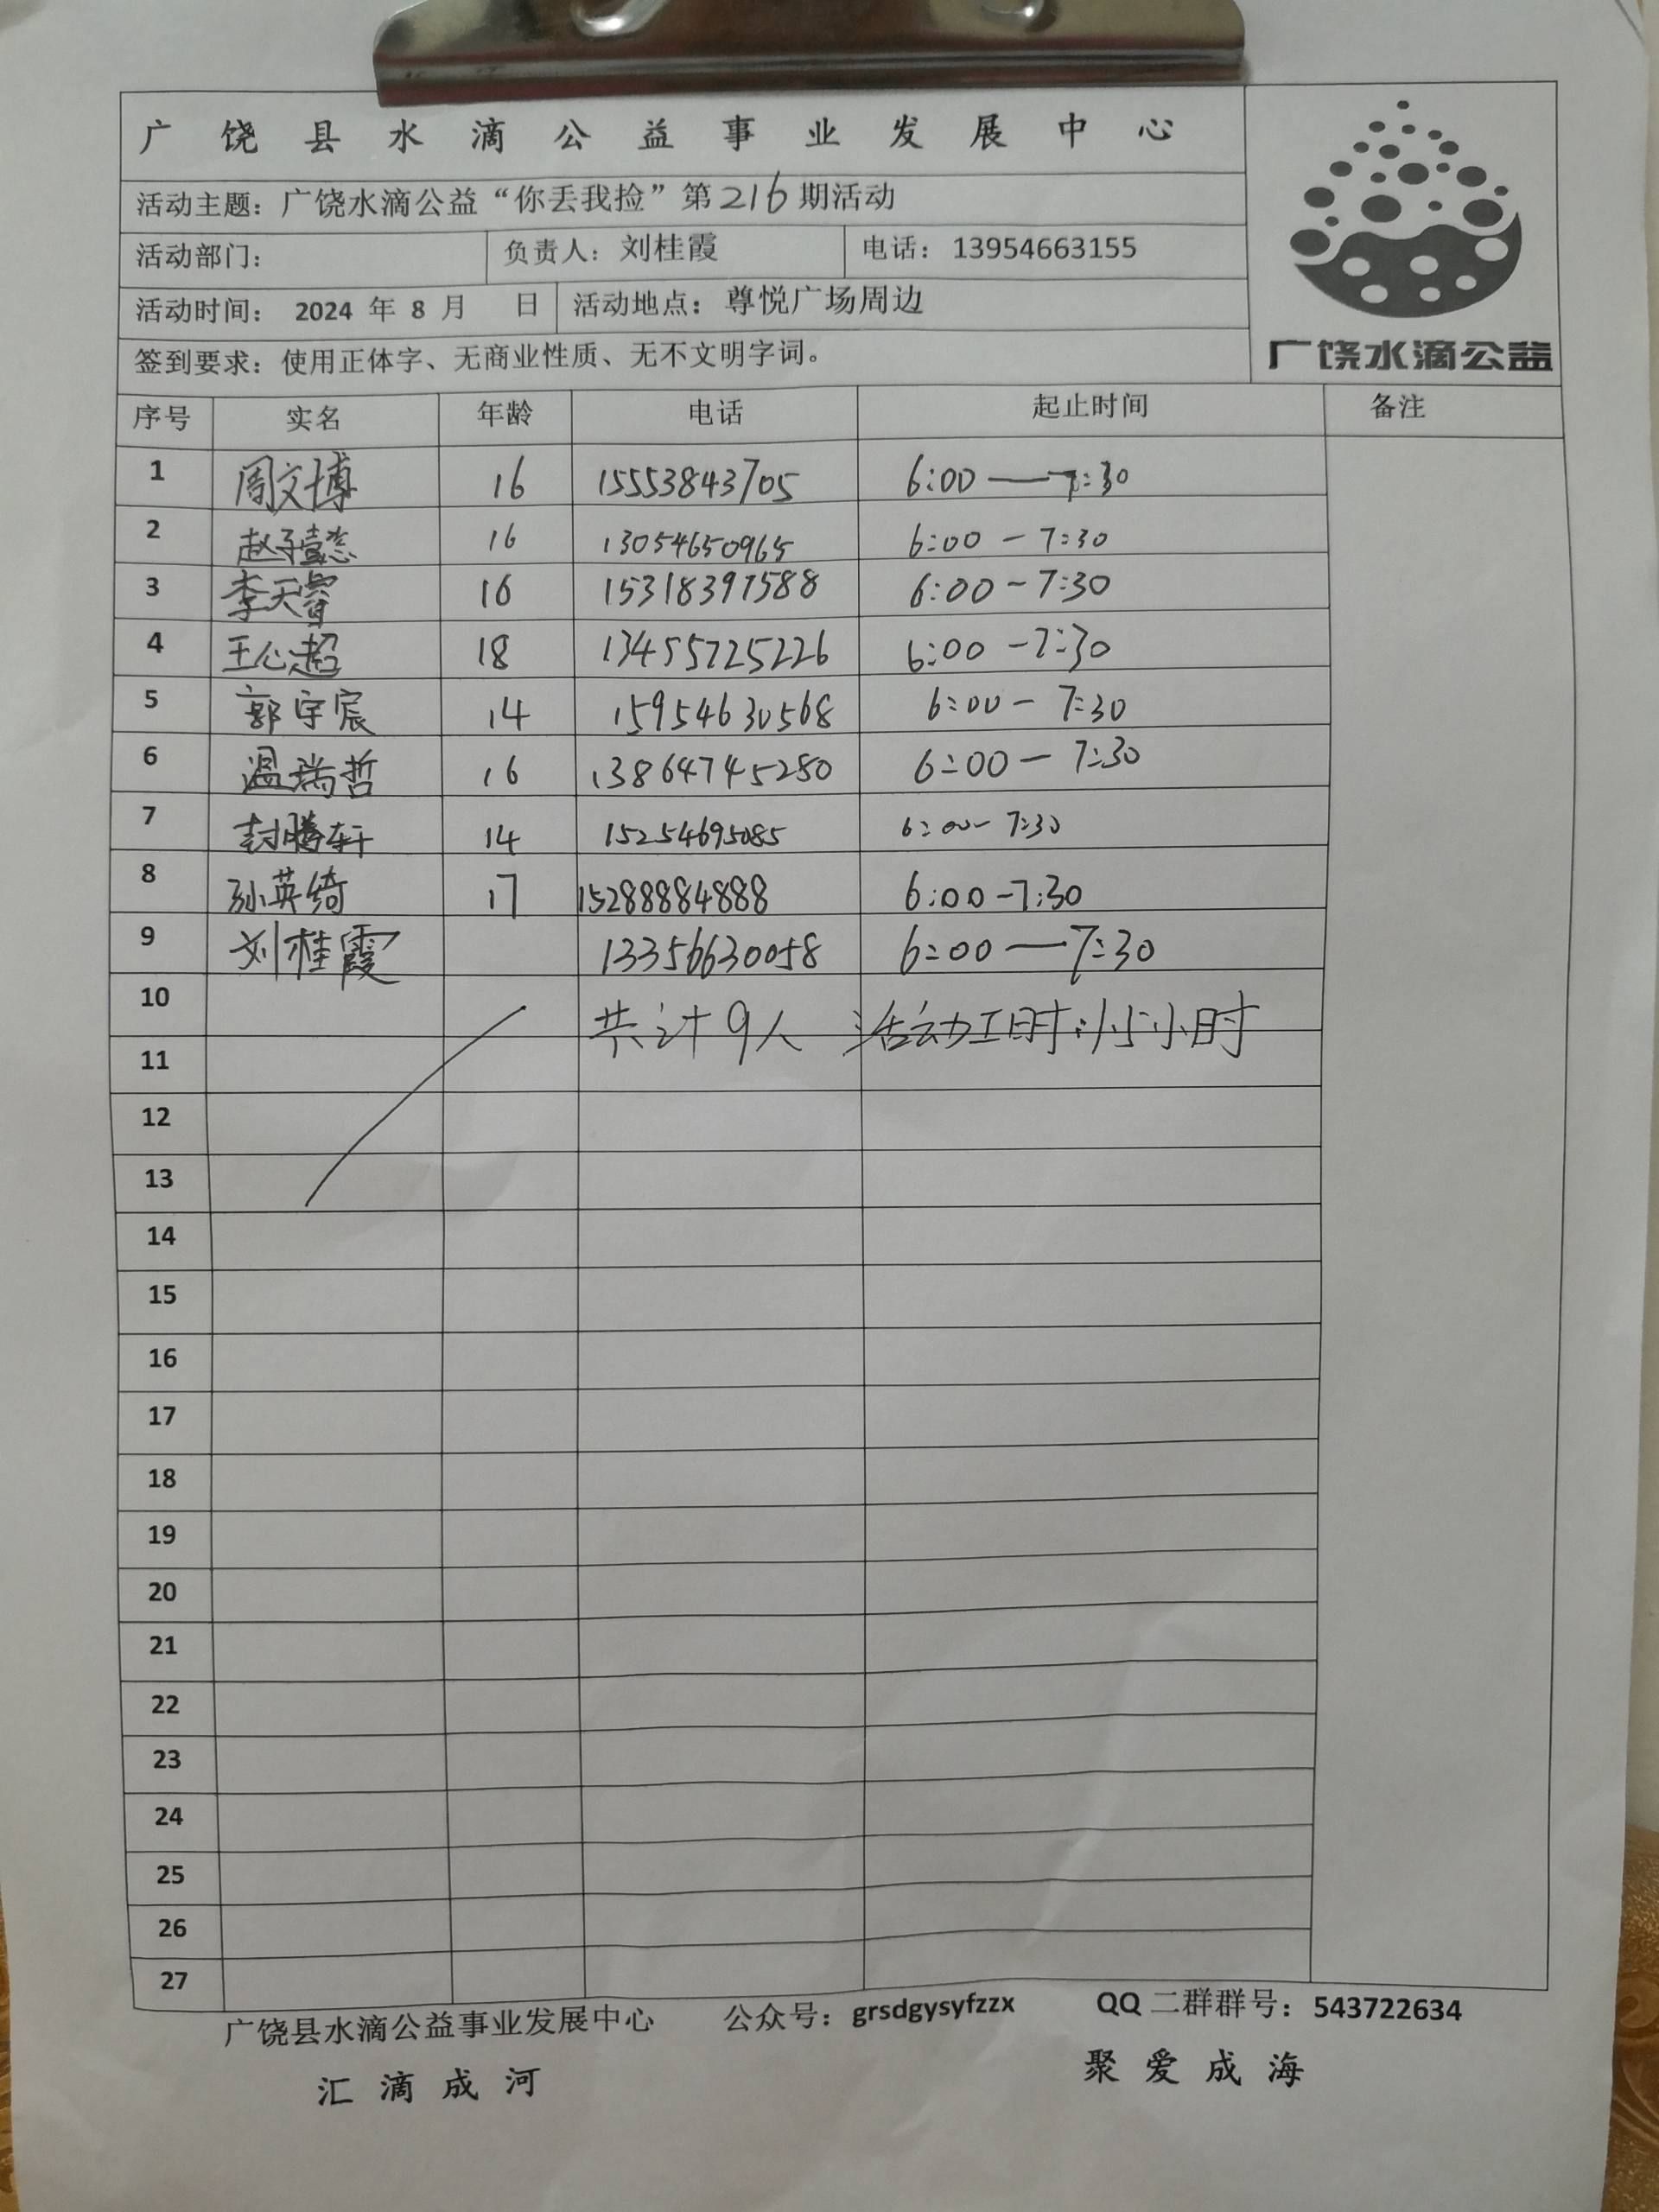 广饶县水滴公益事业发展中心
活动主题：广饶水滴公益“你丢我捡”第216期活动
活动部门： 负责人：刘桂霞 电话：13954663155
活动时间： 2024 年 8 月 日 活动地点：尊悦广场周边
广饶水滴公益
签到要求：使用正体字、无商业性质、无不文明字词。
序号 实名 年龄 电话 起止时间 备注
1 周文博 16 15553843705 6:00——7:30
2 赵子懿 16 13054650965 6:00-7:30
3 李天睿 16 15318397588 6:00-7:30
4 王心超 18 13455725226 6:00-7:30
5 郭宇宸 14 15954630568 6:00-7:30
6 温瑞哲 16 13864745280 6:00-7:30
7 封腾轩 14 15254695085 6:00-7:30
8 孙英绮 17 15288884888 6:00-7:30
9 刘桂霞 13356630058 6:00—7:30
10 共计9人 活动工时:1.5小时
11
12
13
14
15
16
17
18
19
20
21
22
23
24
25
26
27
广饶县水滴公益事业发展中心 公众号：grsdgysyfzzx QQ二群群号：543722634
汇滴成河 聚爱成海